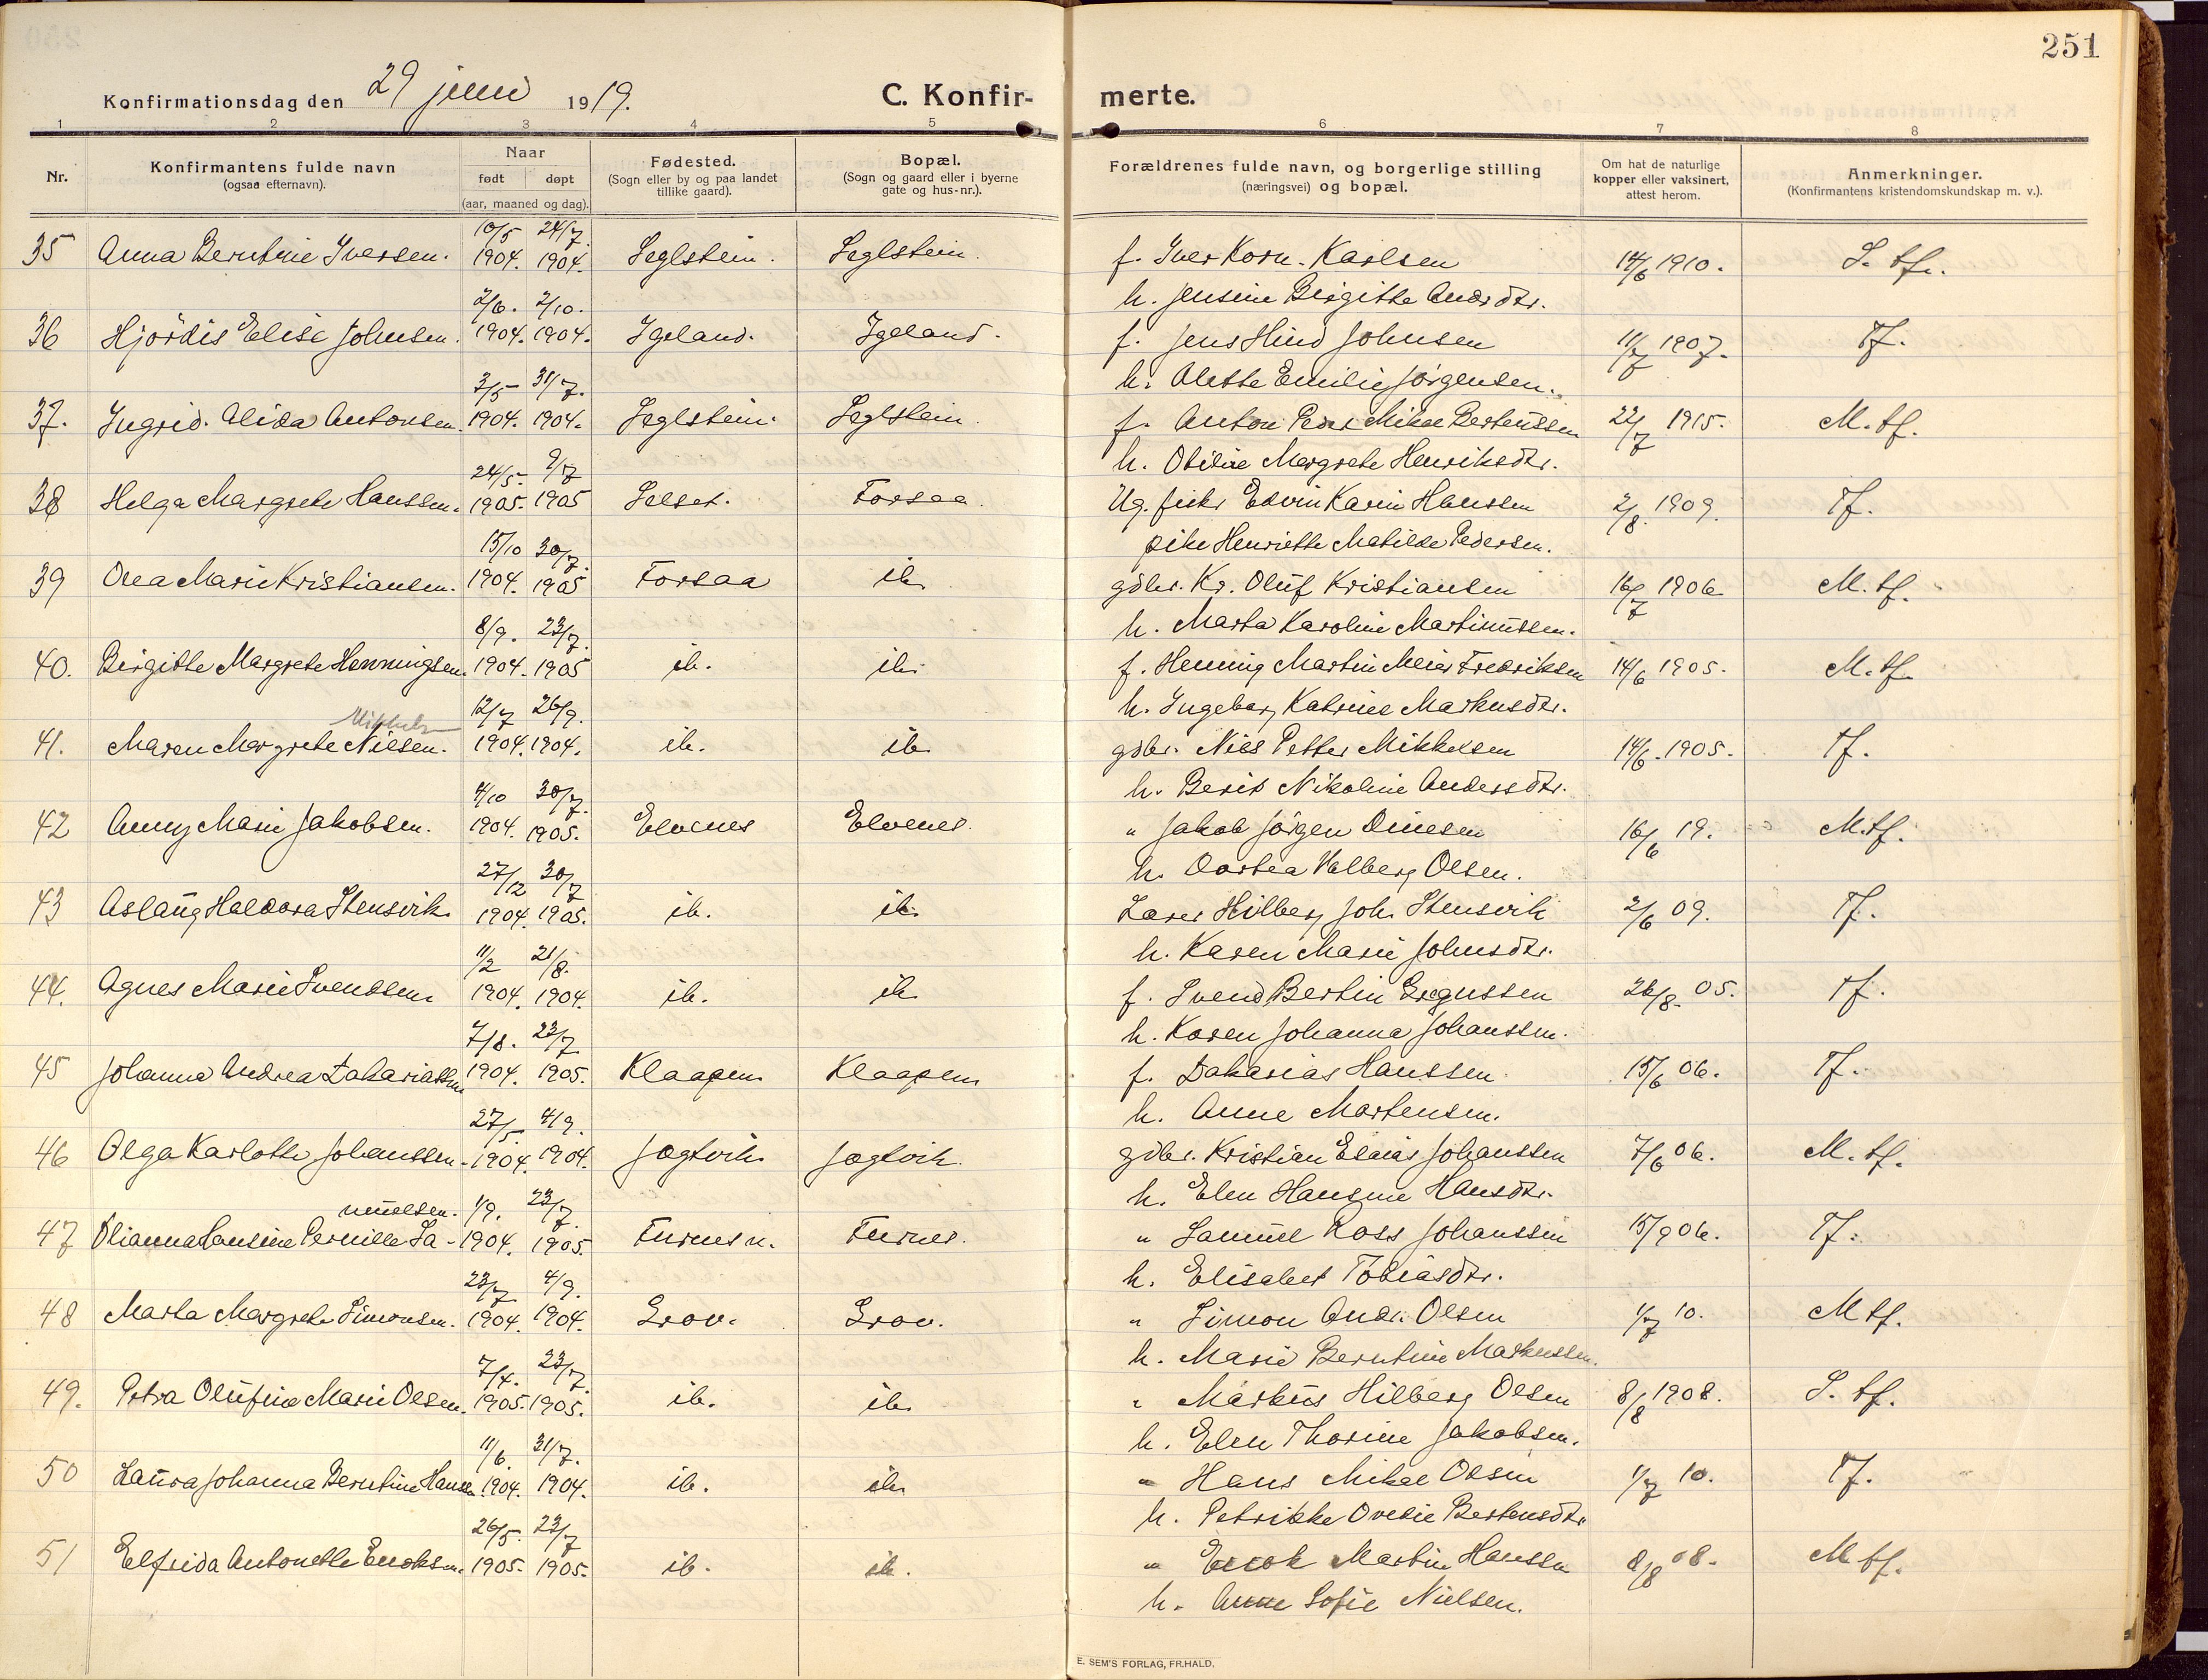 251
Konfirmationsdag den 29 juni 1919.
C. Konfir- merte.
1 2 3 4 5 6 7 8
Nr.
Konfirmantens fulde navn
(ogsaa efternavn).
Naar
født døpt
(aar, maaned og dag).
Fødested.
(Sogn eller by og paa landet
tillike gaard).
Bopæl.
(Sogn og gaard eller i byerne
gate og hus-nr.).
Forældrenes fulde navn, og borgerlige stilling
(næringsvei) og bopæl.
Om hat de naturlige
kopper eller vaksinert,
attest herom.
Anmerkninger.
(Konfirmantens kristendomskundskap m. v.).
10/5 24/7.
35 Anna Berntine Iversen. 1904. 1904. Seglstein. Seglstein. f. Iver Korn. Karlsen 14/6 1910. S. tf.
h. Jensine Birgitte Andrdtr.
2/6. 2/10.
36 Hjördis Elise Johnsen. 1904. 1904. Igeland. Igeland. f. Jens Hind Johnsen 11/7 1907. Tf.
h. Alette Emilie Jörgensen.
3/5 31/7.
37. Ingrid. Alida Antonsen. 1904. 1904. Seglstein. Seglstein. f. Anton Peder Mikal Berteussen 22/7 1915. M. tf.
h. Otilie Margrete Henriksdtr.
24/5. 9/7
38 Helga Margrete Hanssen. 1905. 1905 Selset. Forsaa. Ug. fisker Edvin Karin Hanssen 2/8. 1909. Tf.
pike Henriette Matilde Pedersen.
15/10 30/7.
39 Olea Marie Kristiansen. 1904. 1905 Forsaa ib. gdbr. Kr. Oluf Kristiansen 16/7 1906. M. tf.
h. Marta Karoline Martinussen.
8/9. 23/7.
40. Birgitte Margrete Henningsen. 1904. 1905 ib. ib. f. Henning Martin Meier Fredriksen 14/6 1905. M. tf.
h. Ingeborg Katrine Markusdtr.
12/7 26/9.
41. Maren Margrete Nilsen. 1904. 1904. ib. ib. gdbr. Nils Petter Mikkelsen 14/6. 1905. Tf.
h. Berit Nikoline Andersdtr.
4/10 30/7.
42 Anny Marie Jakobsen. 1904. 1905. Elvenes Elvenes. " Jakob Jörgen Dinesen 16/6 19. M. tf.
h. Dortea Valberg Olsen.
27/12 30/7
43 Aslaug Haldora Stensvik. 1904. 1905. ib. ib. Lærer Hilberg Joh. Stensvik 2/6 09. Tf.
h. Karen Marie Johnsdtr.
11/2 21/8.
44. Agnes Marie Svendsen. 1904. 1904. ib. ib. f. Svend Bertin Gregussen 26/8. 05. Tf.
h. Karen Johanna Johanssen.
7/8. 23/7
45 Johanna Andrea Zakariassen 1904. 1905. Klaapen Klaapen f. Zakarias Hanssen 15/6 06. Tf.
h. Anne Martensen.
27/5. 4/9.
46 Olga Karlotte Johanssen. 1904. 1904. Jogtvik Jogtvik. gdbr. Kristian Esaias Johanssen 7/6 06. M. tf.
h. Elen Hansine Hansdtr.
muelsen. 1/9. 23/7.
47 Olianna Hansine Pernille Sa- 1904. 1905 Furnes n. Furnes. " Samuel Ross Johanssen 15/9 06. Tf.
h. Elisabet Tobiasdtr.
23/7 4/9.
48 Marta Margrete Simonsen. 1904. 1904. Grov. Grov. " Simon Andr. Olsen 1/7 10. M tf.
h. Marie Berntine Markussen.
7/4. 23/7.
49. Petra Olufine Marie Olsen. 1905. 1905. ib. ib. " Markus Hilberg Olsen 8/8 1908. S. tf.
h. Elen Thorine Jakobsen.
11/6. 31/7.
50 Laura Johanna Berntine Hansen. 1904. 1904. ib. ib. " Hans Mikal Olsen 1/7 10. Tf.
h. Petrikke Ovedie Bertensdtr.
26/5. 23/7
51 Elfrida Antonette Enoksen. 1905. 1905. ib. ib. " Enok Martin Hanssen 8/8 08. M tf.
h. Anne Sofie Nielsen.
E. SEM'S FORLAG, FR.HALD.